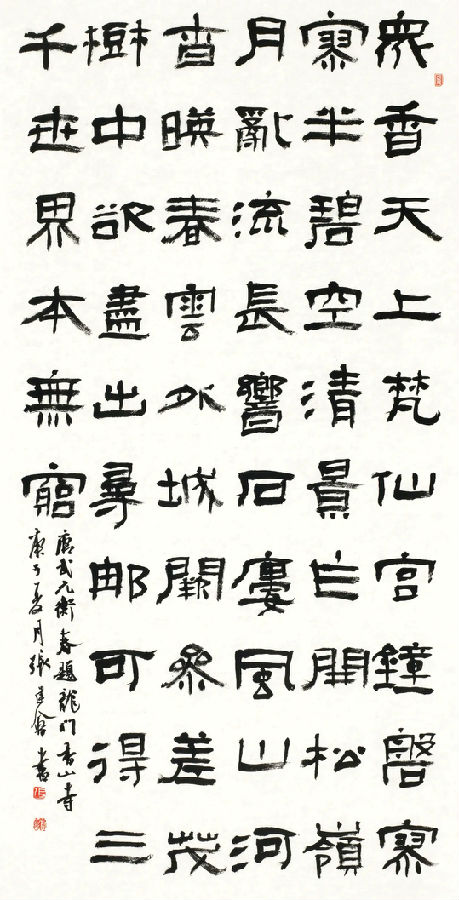 眾香天上梵仙宮鐘磬寥
寥半碧空清景乍開松嶺
月亂流長響石廔風山河
杳暎春雲外城闕參差茂
樹中欲盡出尋那可得三
千世界本無窮
唐武元衡春題龍門香山寺
庚子夏月張書